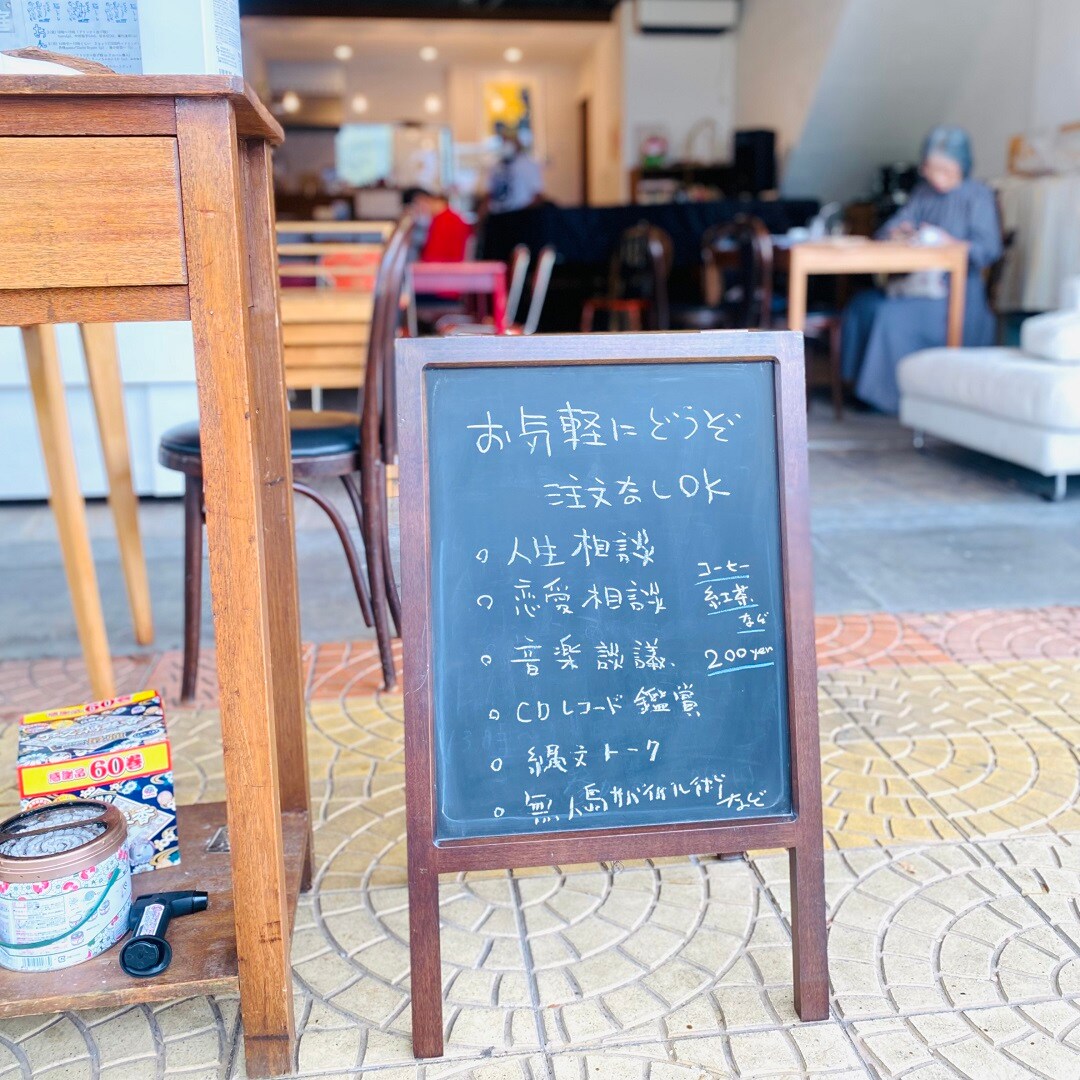 お気軽にどうぞ
注文なしOK
○人生相談
○恋愛相談
○音楽談議
○CDレコード鑑賞
○縄文トーク
○無人島サバイバル術など
コーヒー
紅茶
など
200yen
感謝品60巻